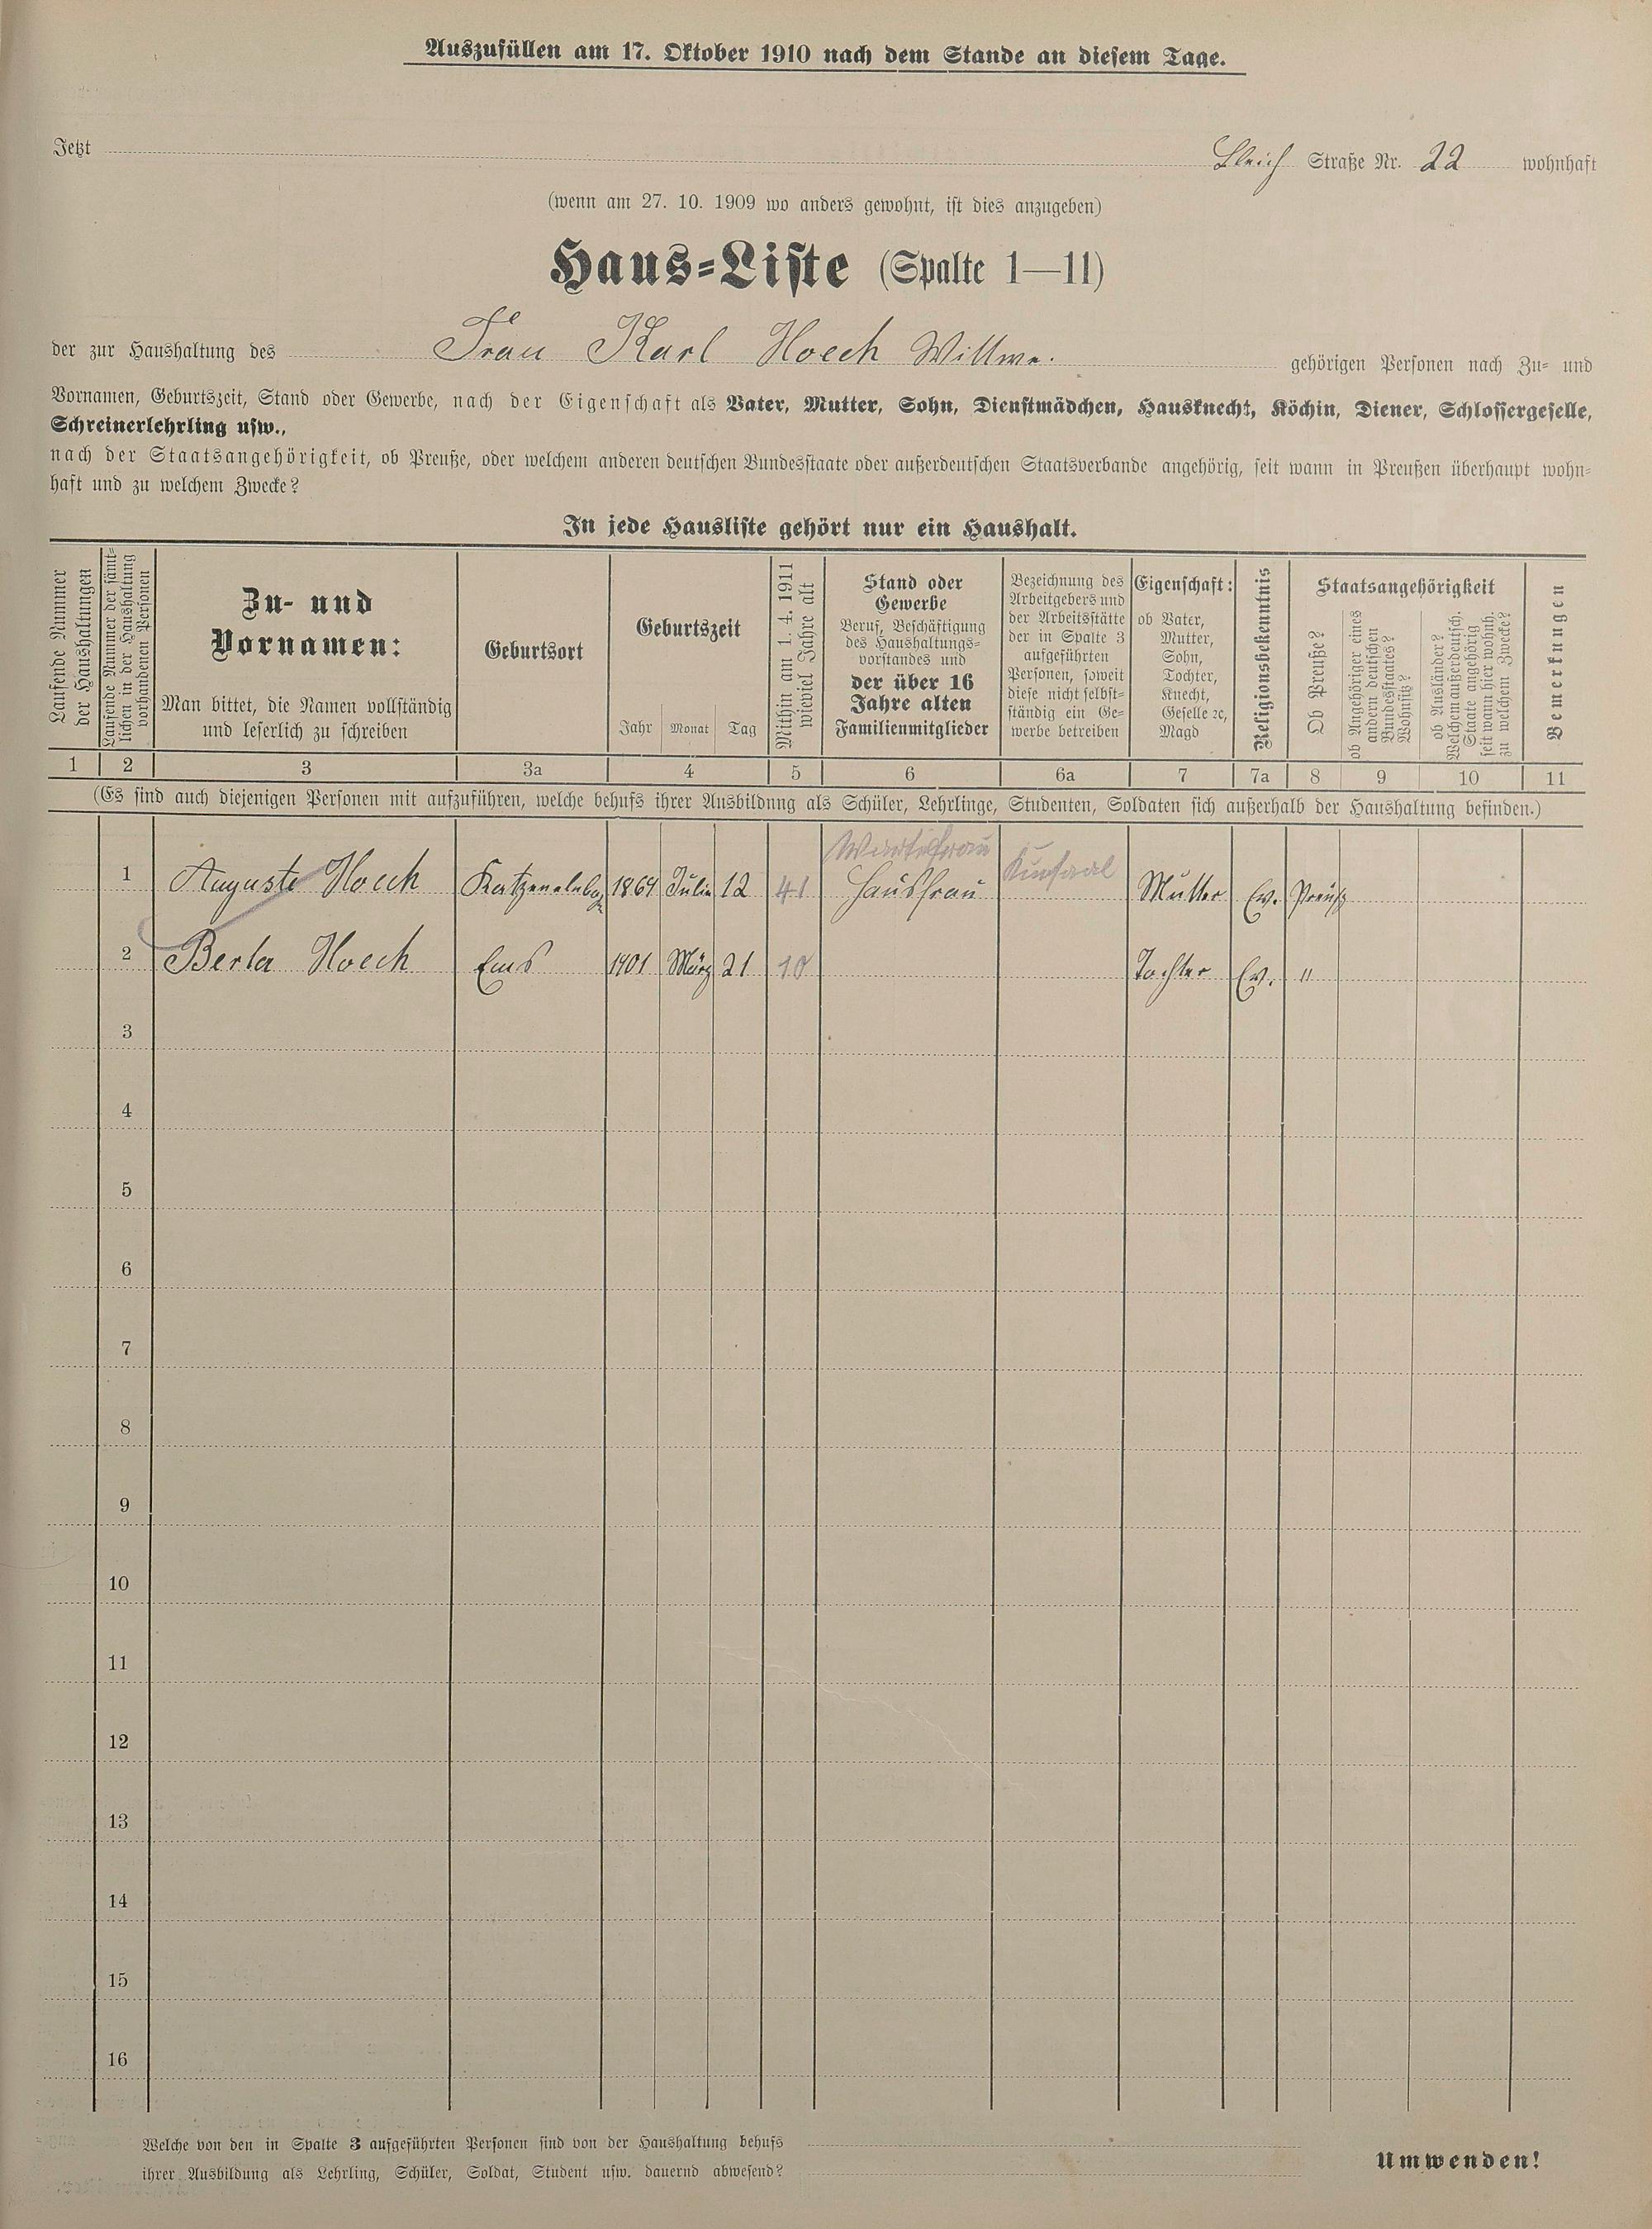 Auszufüllen am 17. Oktober 1910 nach dem Stande an diesem Tage.
Jetzt Bleich Straße Nr. 22 wohnhaft
(wenn am 27. 10. 1909 wo anders gewohnt, ist dies anzugeben)
Haus-Liste (Spalte 1—11)
der zur Haushaltung des Frau Karl Hoech Wittwe. gehörigen Personen nach Zu- und
Vornamen, Geburtszeit, Stand oder Gewerbe, nach der Eigenschaft als Vater, Mutter, Sohn, Dienstmädchen, Hausknecht, Köchin, Diener, Schlossergeselle,
Schreinerlehrling usw.,
nach der Staatsangehörigkeit, ob Preuße, oder welchem anderen deutschen Bundesstaate oder außerdeutschen Staatsverbande angehörig, seit wann in Preußen überhaupt wohn-
haft und zu welchem Zwecke?
In jede Hausliste gehört nur ein Haushalt.
Laufende Nummer
der Haushaltungen
Laufende Nummer der sämt-
lichen in der Haushaltung
vorhandenen Personen
Zu- und
Vornamen:
Man bittet, die Namen vollständig
und leserlich zu schreiben
Geburtsort
Geburtszeit
Jahr Monat Tag
Mithin am 1. 4. 1911
wieviel Jahre alt
Stand oder
Gewerbe
Beruf, Beschäftigung
des Haushaltungs-
vorstandes und
der über 16
Jahre alten
Familienmitglieder
Bezeichnung des
Arbeitgebers und
der Arbeitsstätte
der in Spalte 3
aufgeführten
Personen, soweit
diese nicht selbst-
ständig ein Ge-
werbe betreiben
Eigenschaft:
ob Vater,
Mutter,
Sohn,
Tochter,
Knecht,
Geselle ꝛc,
Magd
Religionsbekenntnis
Staatsangehörigkeit
Ob Preuße?
ob Angehöriger eines
andern deutschen
Bundesstaates?
Wohnsitz?
ob Ausländer?
Welchem außerdeutsch.
Staate angehörig
seit wann hier wohnh.
zu welchem Zwecke?
Bemerkungen
1 2 3 3a 4 5 6 6a 7 7a 8 9 10 11
(Es sind auch diejenigen Personen mit aufzuführen, welche behufs ihrer Ausbildung als Schüler, Lehrlinge, Studenten, Soldaten sich außerhalb der Haushaltung befinden.)
Wartefrau Kursaal
1 Auguste Hoech Katzenelnbog 1869 Julie 12 41 Hausfrau Mutter Ev. Preuß
2 Berta Hoech Ems 1901 März 21 10 Tochter Ev. "
3
4
5
6
7
8
9
10
11
12
13
14
15
16
Welche von den in Spalte 3 aufgeführten Personen sind von der Haushaltung behufs
ihrer Ausbildung als Lehrling, Schüler, Soldat, Student usw. dauernd abwesend?
Umwenden!